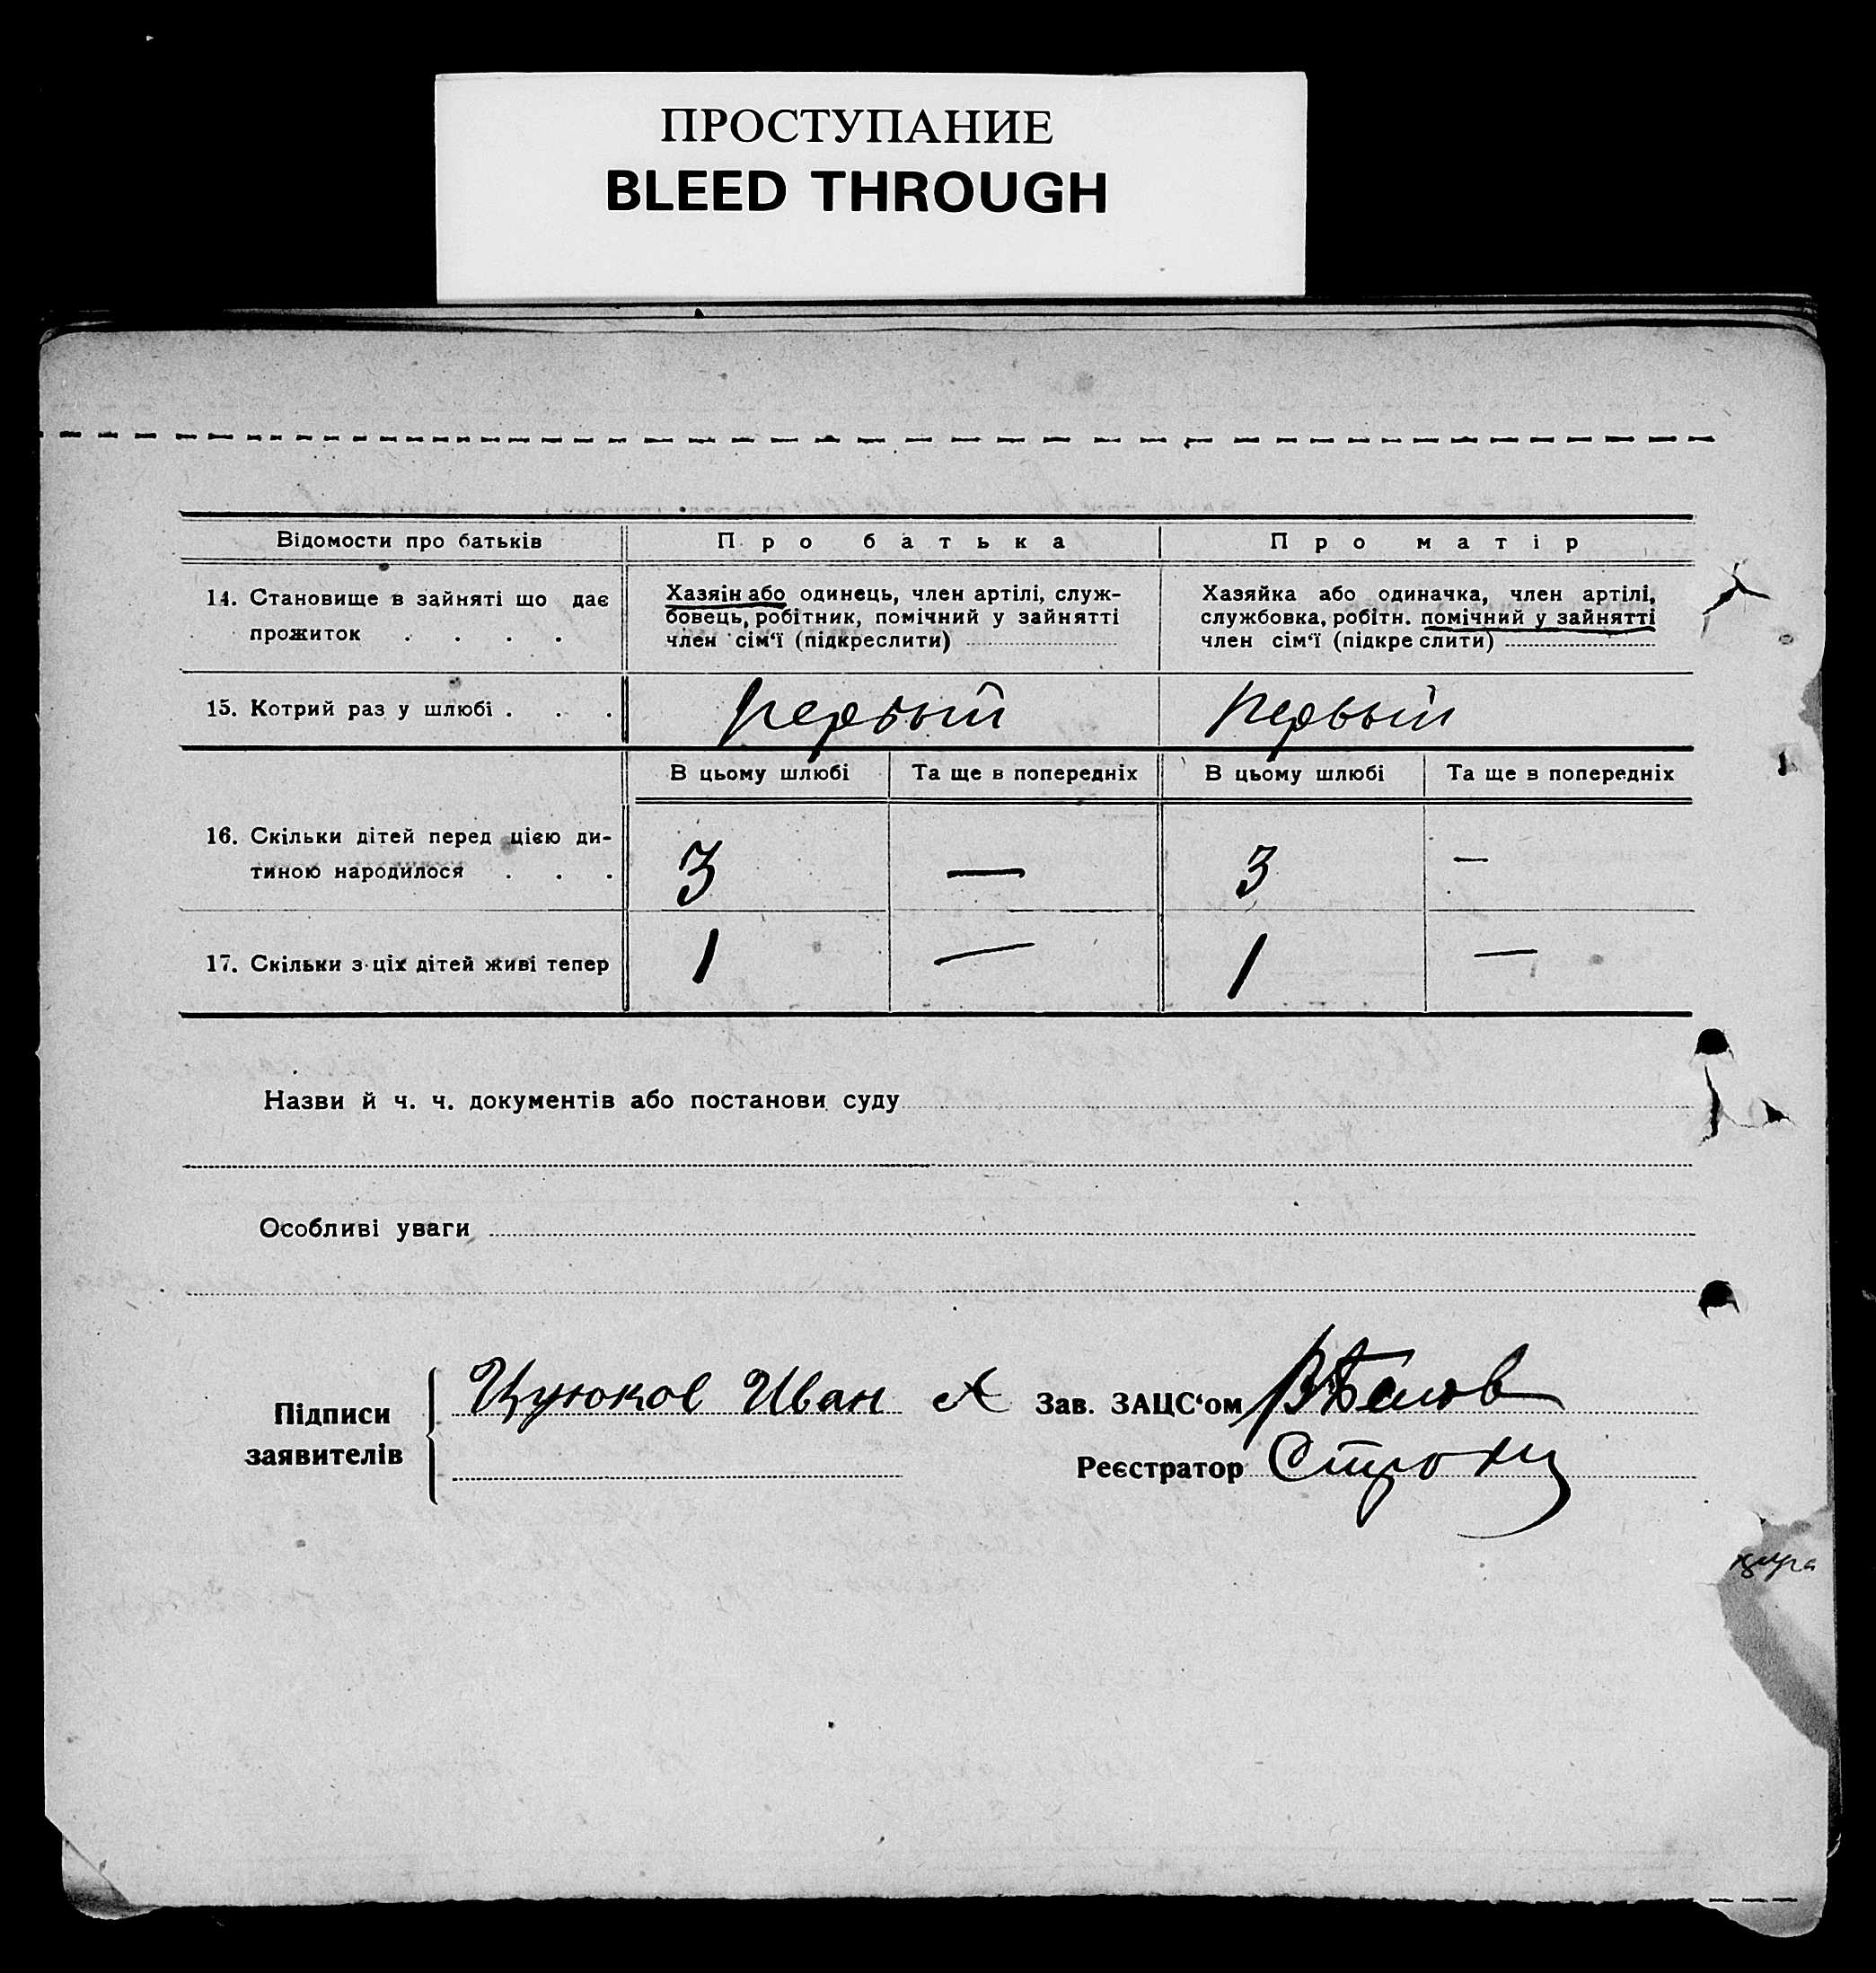 ПРОСТУПАНИЕ
BLEED THROUGH
Відомости про батьків Про батька Про матір
14. Становище в зайняті що дає
прожиток . . . .
Хазяін або одинець, член артілі, служ-
бовець, робітник, помічний у зайнятті
член сім‘ї (підкреслити)
Хазяйка або одиначка, член артілі,
службовка, робітн. помічний у зайнятті
член сім‘ї (підкреслити)
15. Котрий раз у шлюбі . . . первый первый
В цьому шлюбі Та ще в попередніх В цьому шлюбі Та ще в попередніх
16. Скільки дітей перед цією ди-
тиною народилося . . . 3 — 3 —
17. Скільки з ціх дітей живі тепер 1 — 1 —
Назви й ч. ч. документів або постанови суду
Особливі уваги
Підписи
заявителів
Цуюков Иван А
Зав. ЗАЦС‘ом
Реєстратор